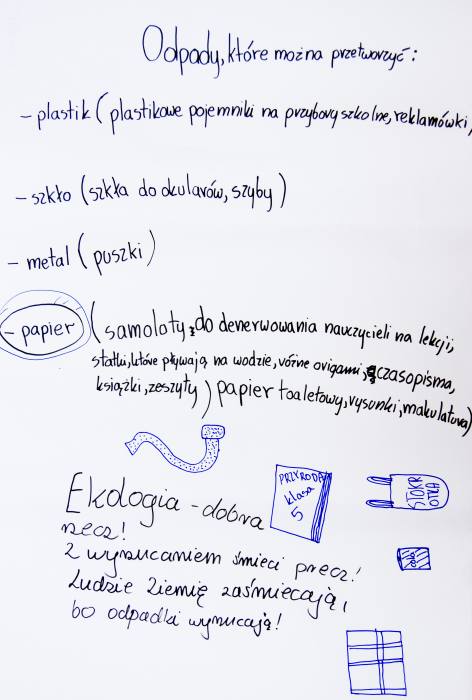 Odpady, które można przetworzyć:
- plastik (plastikowe pojemniki na przybory szkolne, reklamówki,
- szkło (szkła do okularów, szyby)
- metal (puszki)
- papier (samoloty do denerwowania nauczycieli na lekcji,
statki, które pływają na wodzie, różne origami, czasopisma,
książki, zeszyty) papier toaletowy, rysunki, makulatura)
PRZYRODA
klasa
5
STOKR
OTKA
Ekologia - dobra
rzecz!
Z wyrzucaniem śmieci precz!
Ludzie Ziemię zaśmiecają,
bo odpadki wyrzucają!